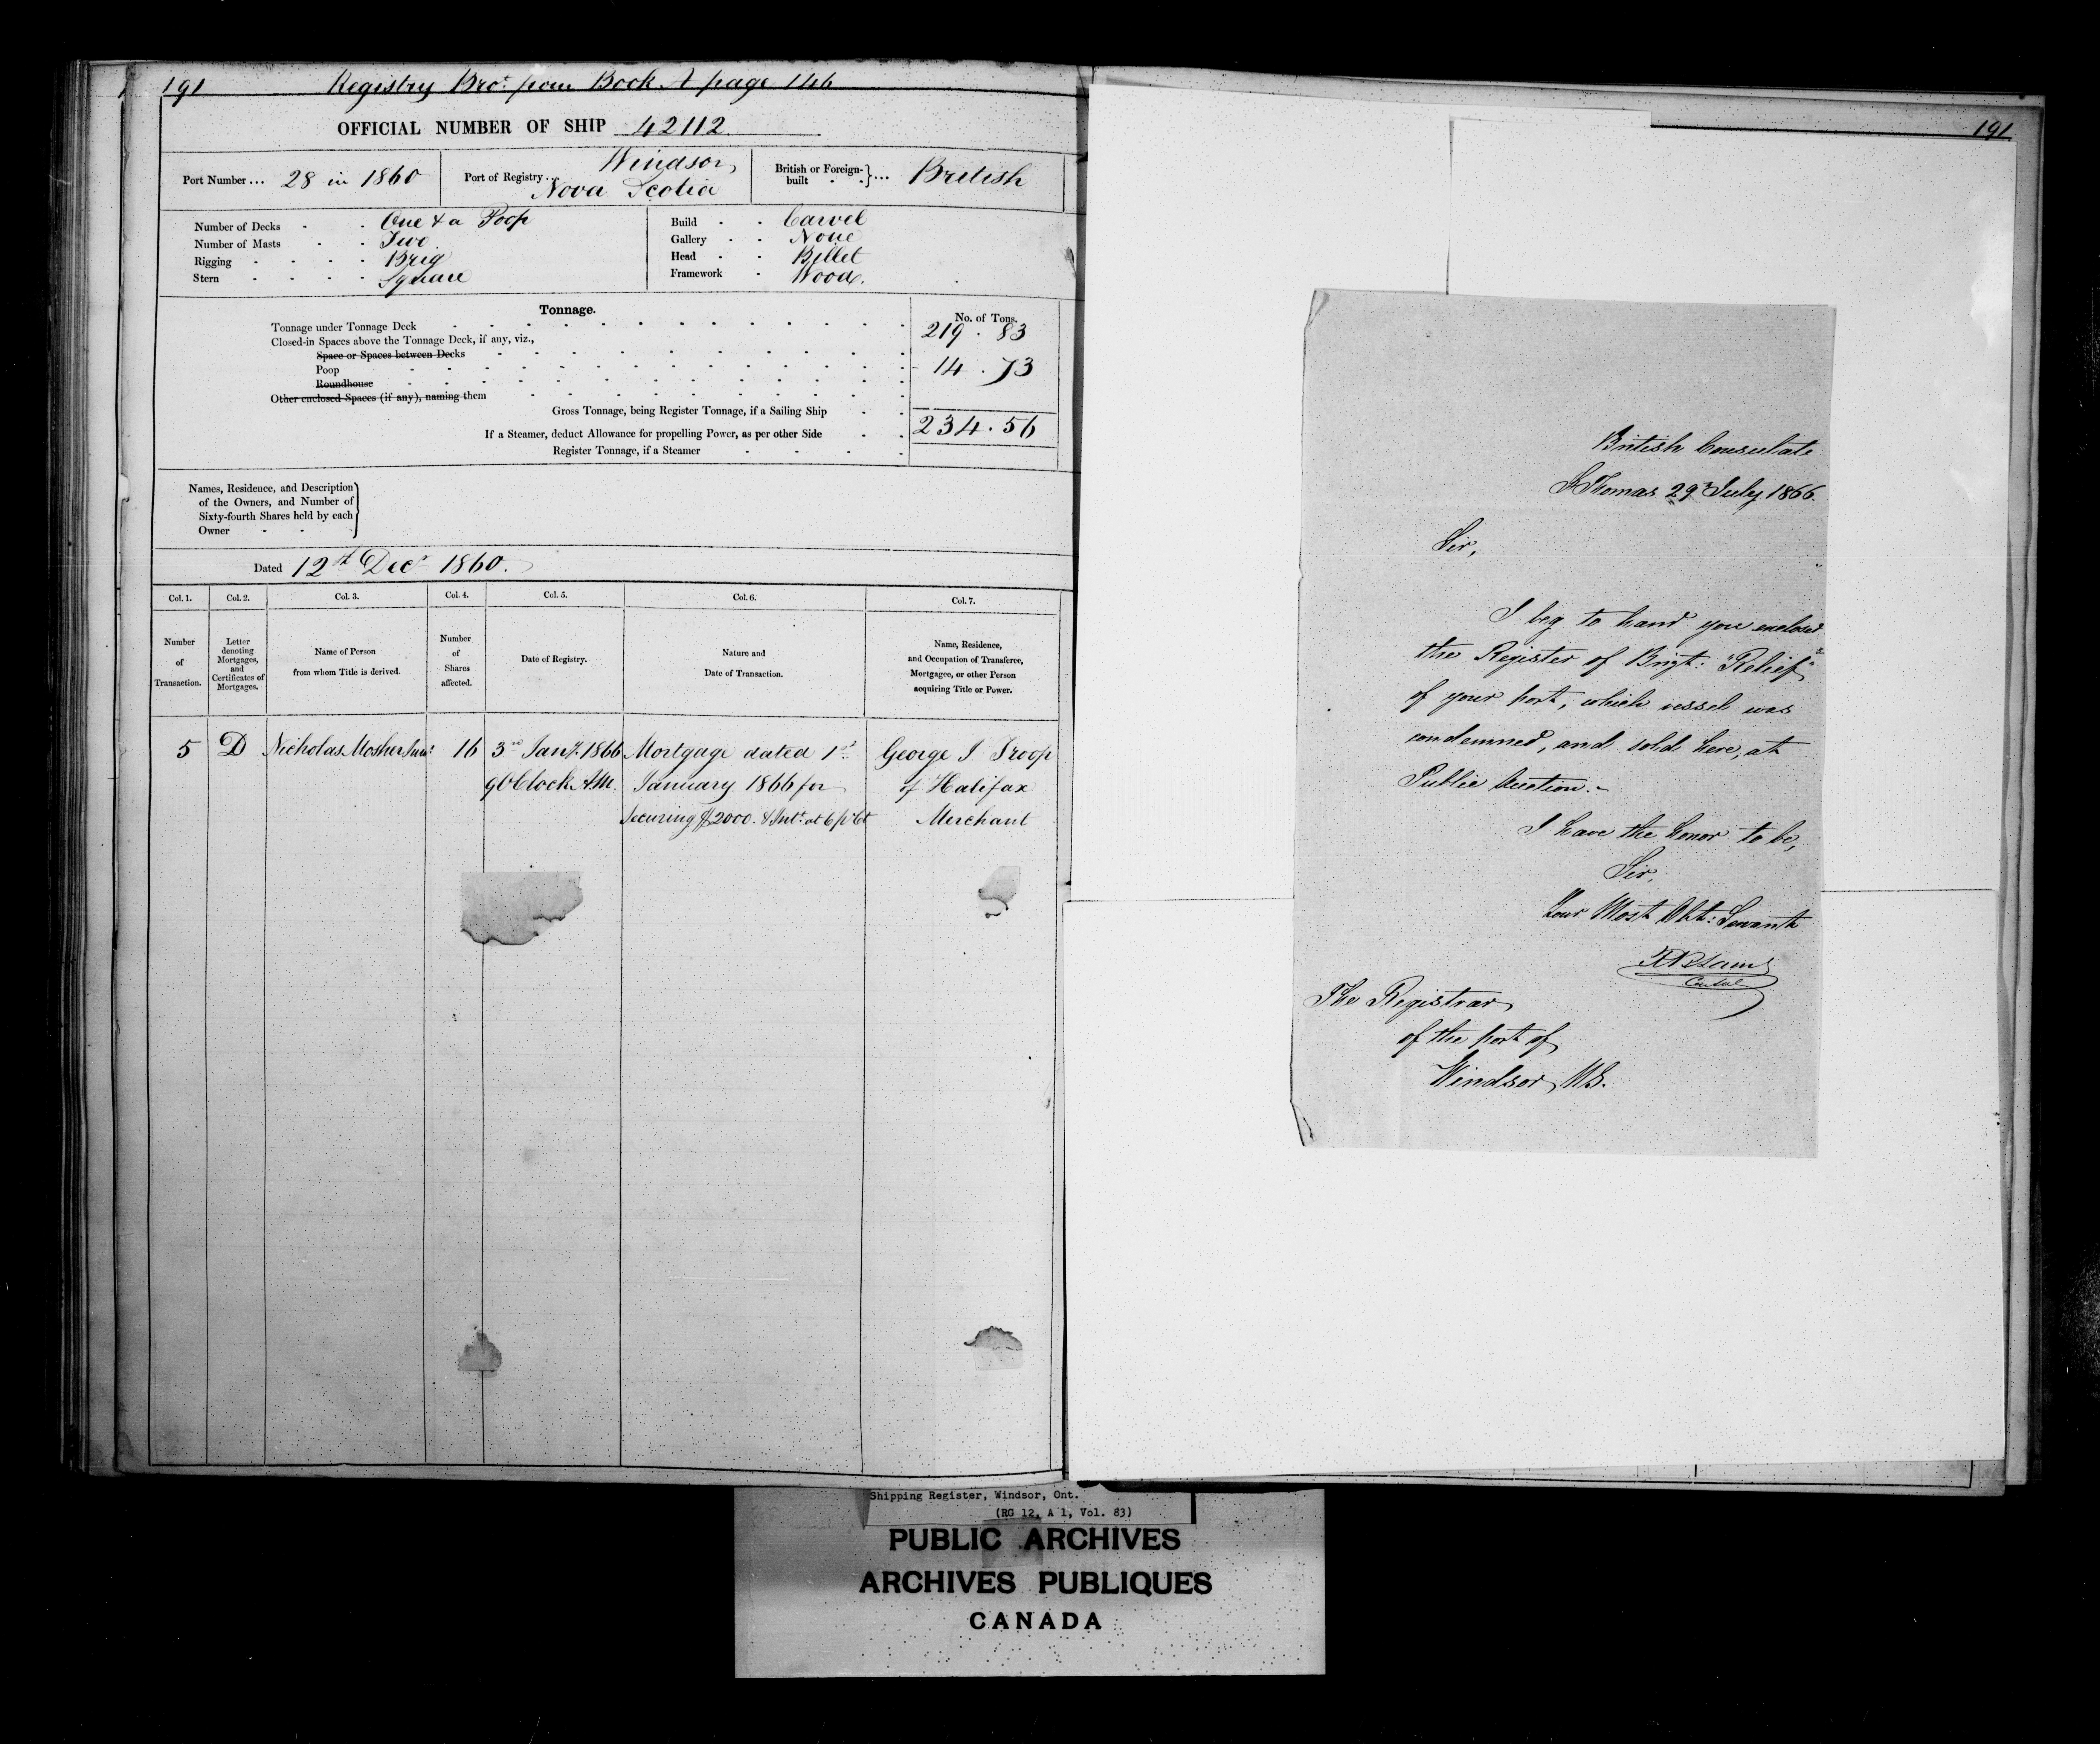 191 Registry Bro.t from Book A page 146
OFFICIAL NUMBER OF SHIP 42112
Port Number... 28 in 1860
Port of Registry... Windsor,
Nova Scotia
British or Foreign-
built }... British
Number of Decks - - One & a Poop
Number of Masts - - Two
Rigging - - - - Brig
Stern - - - - Square
Build - - Carvel
Gallery - - None
Head - - Billet
Framework - Wood.
Tonnage.
No. of Tons.
Tonnage under Tonnage Deck 219.83
Closed-in Spaces above the Tonnage Deck, if any, viz.,
Space or Spaces between Decks
Poop 14.73
Roundhouse
Other enclosed Spaces (if any), naming them
Gross Tonnage, being Register Tonnage, if a Sailing Ship 234.56
If a Steamer, deduct Allowance for propelling Power, as per other Side
Register Tonnage, if a Steamer
Names, Residence, and Description
of the Owners, and Number of
Sixty-fourth Shares held by each
Owner - -
Dated 12th Decr 1860.
Col. 1. Col. 2. Col. 3. Col. 4. Col. 5. Col. 6. Col. 7.
Number
of
Transaction.
Letter
denoting
Mortgages,
and
Certificates of
Mortgages.
Name of Person
from whom Title is derived.
Number
of
Shares
affected.
Date of Registry.
Nature and
Date of Transaction.
Name, Residence,
and Occupation of Transferee,
Mortgagee, or other Person
acquiring Title or Power.
5 D Nicholas Mosher Junr 16 3rd Jany. 1866 Mortgage dated 1st George J Troop
9 O'Clock A.M. January 1866 for of Halifax
Securing $2000. & Intt. at 6 pr Ct Merchant
191
British Consulate
St Thomas 29th July 1866.
Sir,
I beg to hand you enclosed
the Register of Brigt: "Relief"
of your port, which vessel was
condemned, and sold here, at
Public Auction.-
I have the honor to be,
Sir,
Your Most Obt: Servant
Consul
The Registrar
of the port of
Windsor, NS.
Shipping Register, Windsor, Ont.
(RG 12, A 1, Vol. 83)
PUBLIC ARCHIVES
ARCHIVES PUBLIQUES
CANADA